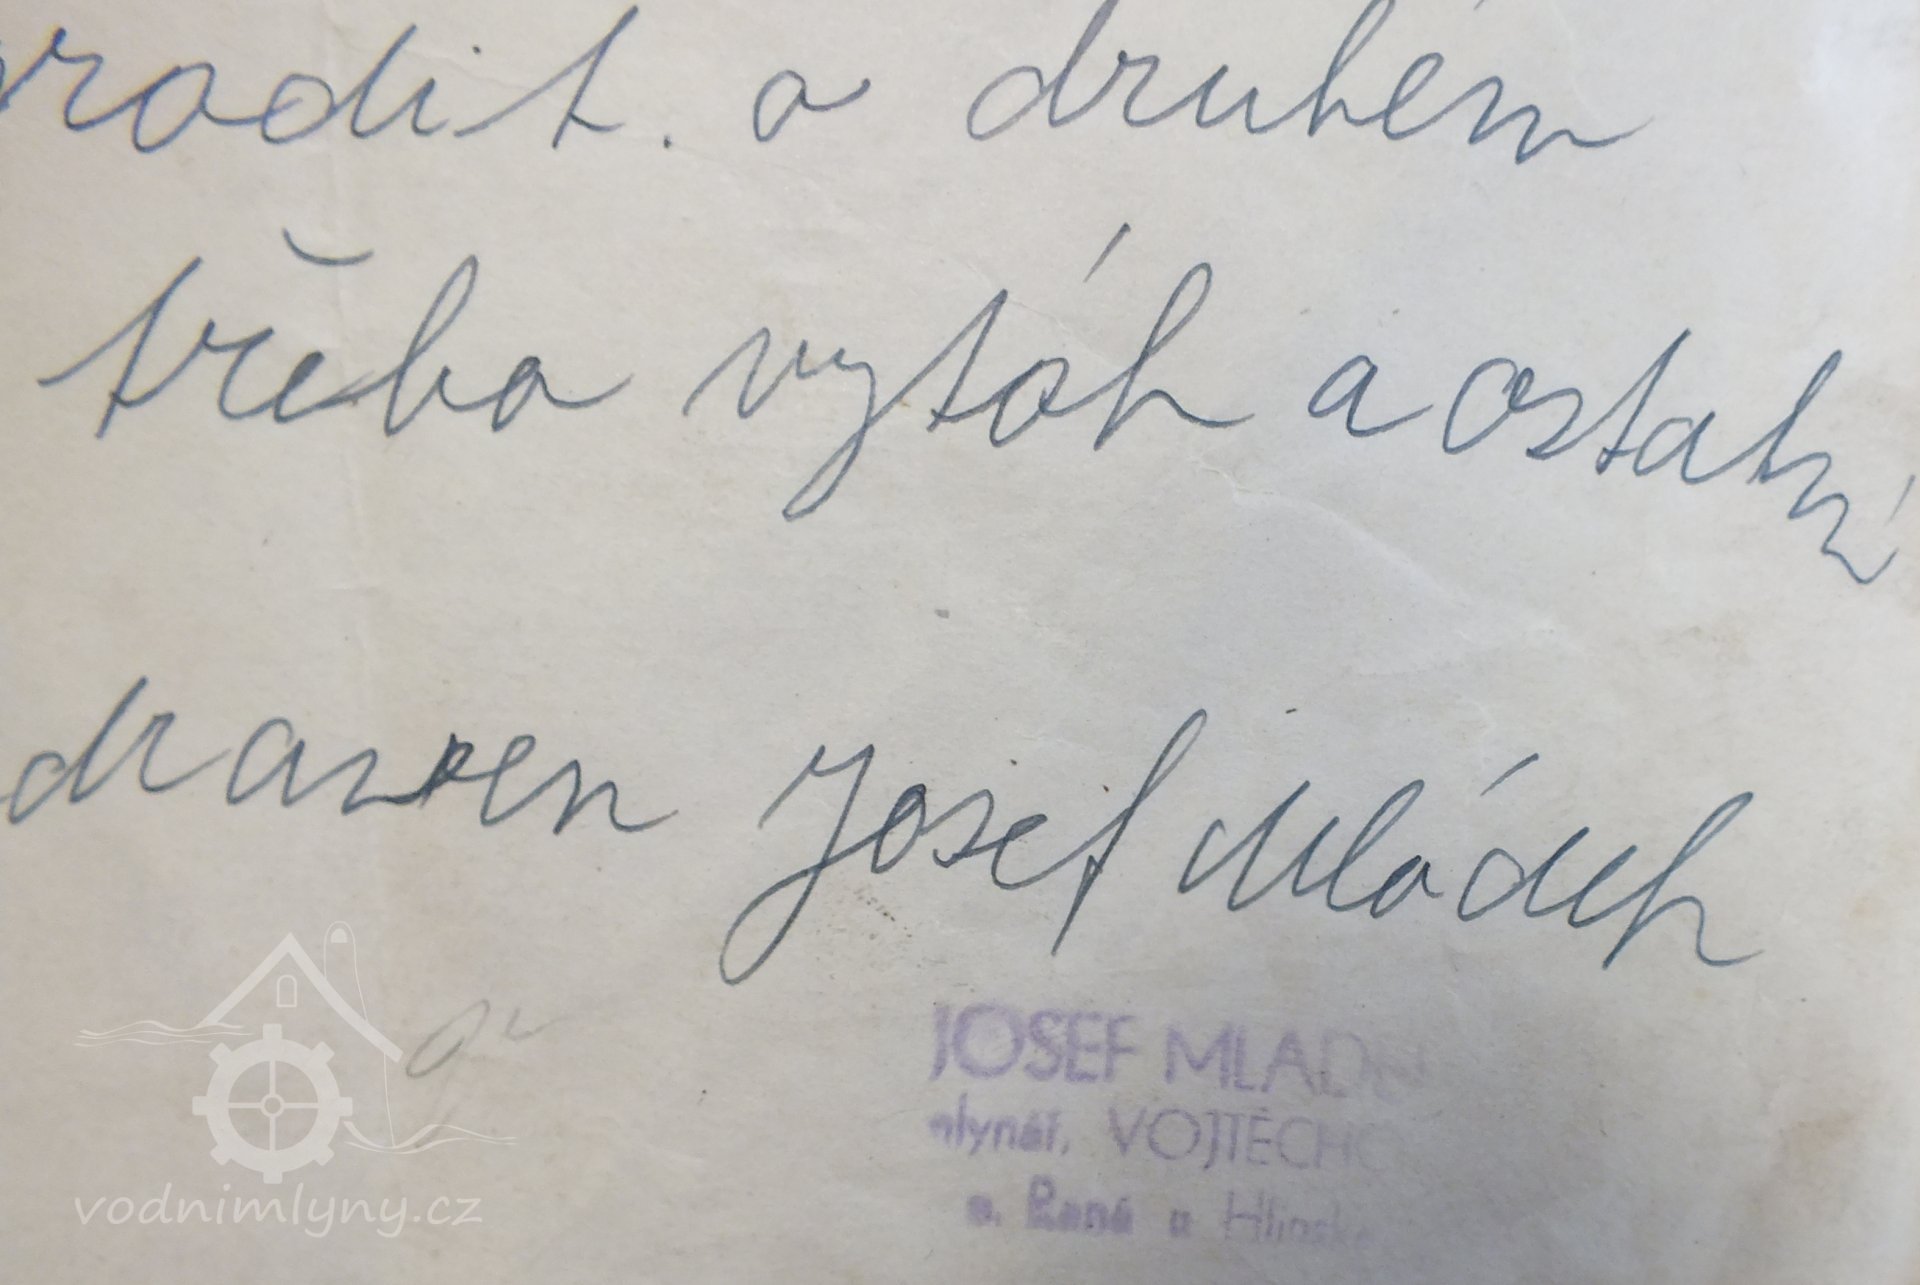 vradit. a druhém
třeba vytáh a ostatní
draven Josef Mládek
JOSEF MLADE
mlynář, VOJTĚCHO
p. Raná u Hlinska
vodnimlyny.cz